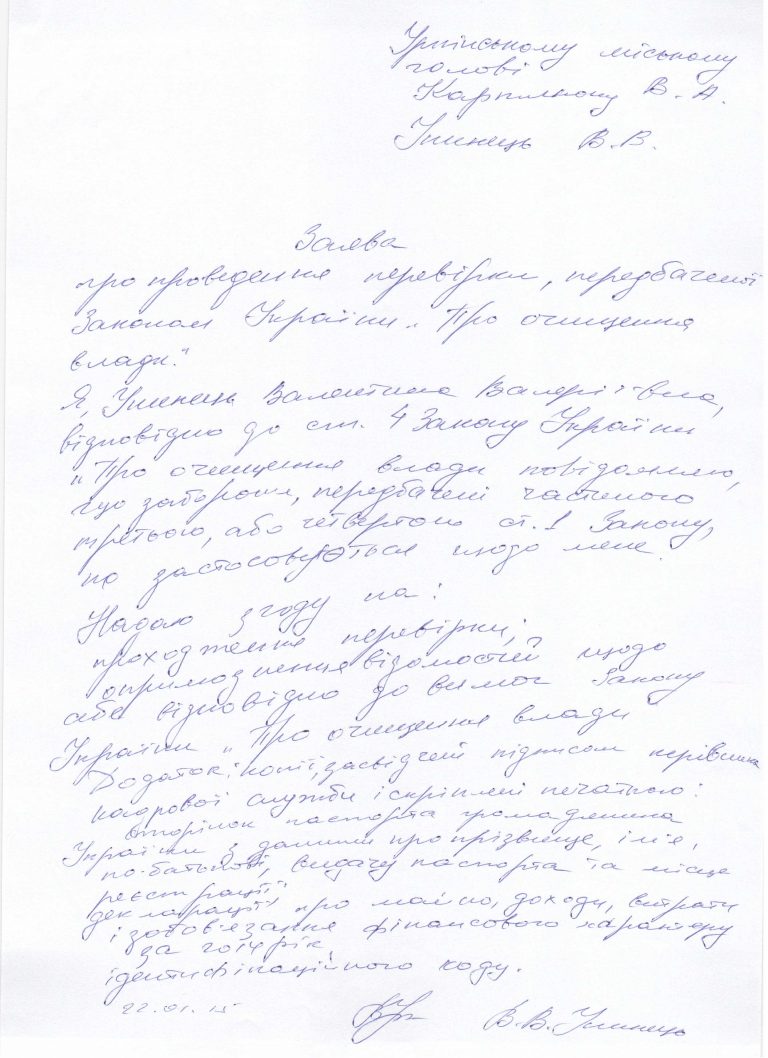 Ірпінському міському
голові
Карплюку В. А.
Ушинець В. В.
Заява
про проведення перевірки, передбаченої
Законом України „Про очищення
влади".
Я, Ушинець Валентина Валеріївна,
відповідно до ст. 4 Закону України
„Про очищення влади повідомляю,
що заборони, передбачені частиною
третьою, або четвертою ст. 1 Закону,
не застосовуються щодо мене.
Надаю згоду на:
проходження перевірки;
оприлюднення відомостей щодо
себе відповідно до вимог Закону
України „Про очищення влади
Додаток: копії, засвідчені підписом керівника
кадрової служби і скріплені печаткою:
сторінок паспорта громадянина
України з даними про прізвище, ім'я,
по-батькові, видачу паспорта та місце
реєстрації;
декларації про майно, доходи, витрати
і зобов'язання фінансового характеру
за 2014 рік
ідентифікаційного коду.
22.01.15
В.В. Ушинець